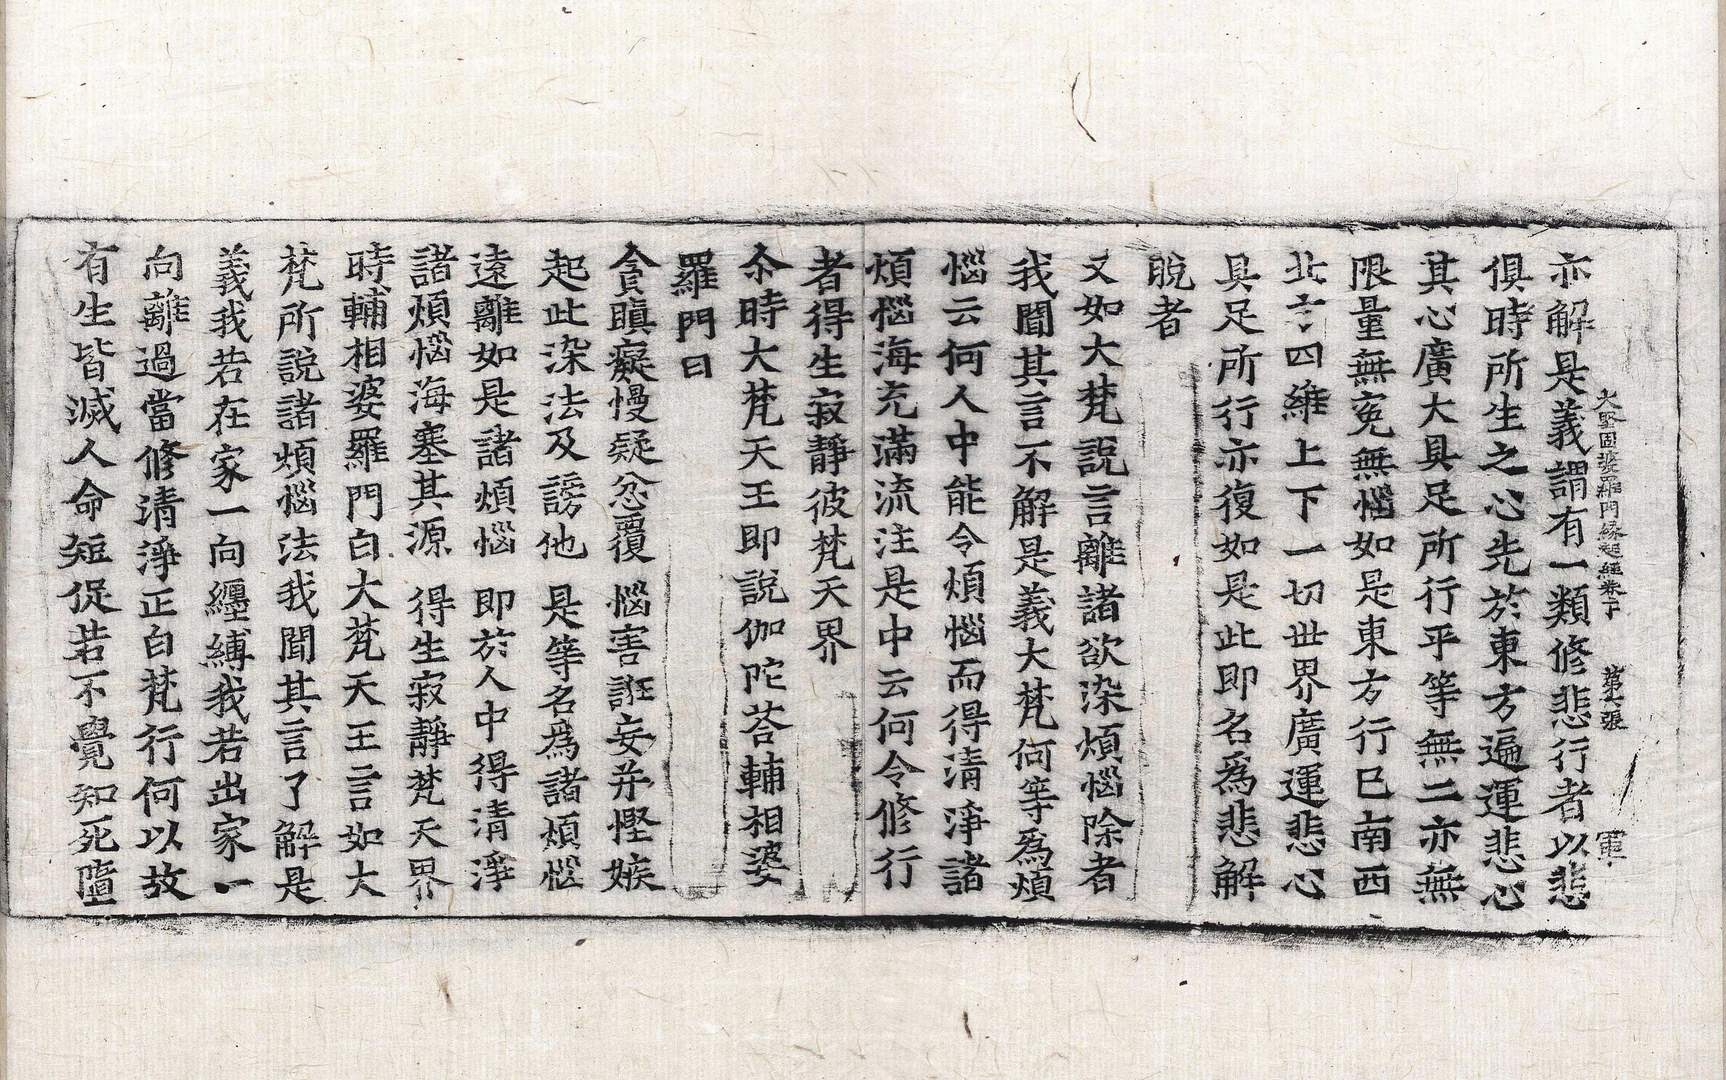 大堅固婆羅門緣起經卷下 第六張 軍
亦解是義謂有一類修悲行者以悲
俱時所生之心先於東方遍運悲心
其心廣大具足所行平等無二亦無
限量無寃無惱如是東方行已南西
北方四維上下一切世界廣運悲心
具足所行亦復如是此即名爲悲解
脫者
又如大梵說言離諸欲染煩惱除者
我聞其言不解是義大梵何等爲煩
惱云何人中能令煩惱而得清淨諸
煩惱海充滿流注是中云何令修行
者得生寂靜彼梵天界
尒時大梵天王即說伽陀荅輔相婆
羅門曰
貪瞋癡慢疑忿覆 惱害誑妄并慳嫉
起此染法及謗他 是等名爲諸煩惱
遠離如是諸煩惱 即於人中得清淨
諸煩惱海塞其源 得生寂靜梵天界
時輔相婆羅門白大梵天王言如大
梵所說諸煩惱法我聞其言了解是
義我若在家一向纏縛我若出家一
向離過當修清淨正白梵行何以故
有生皆滅人命短促若不覺知死墮